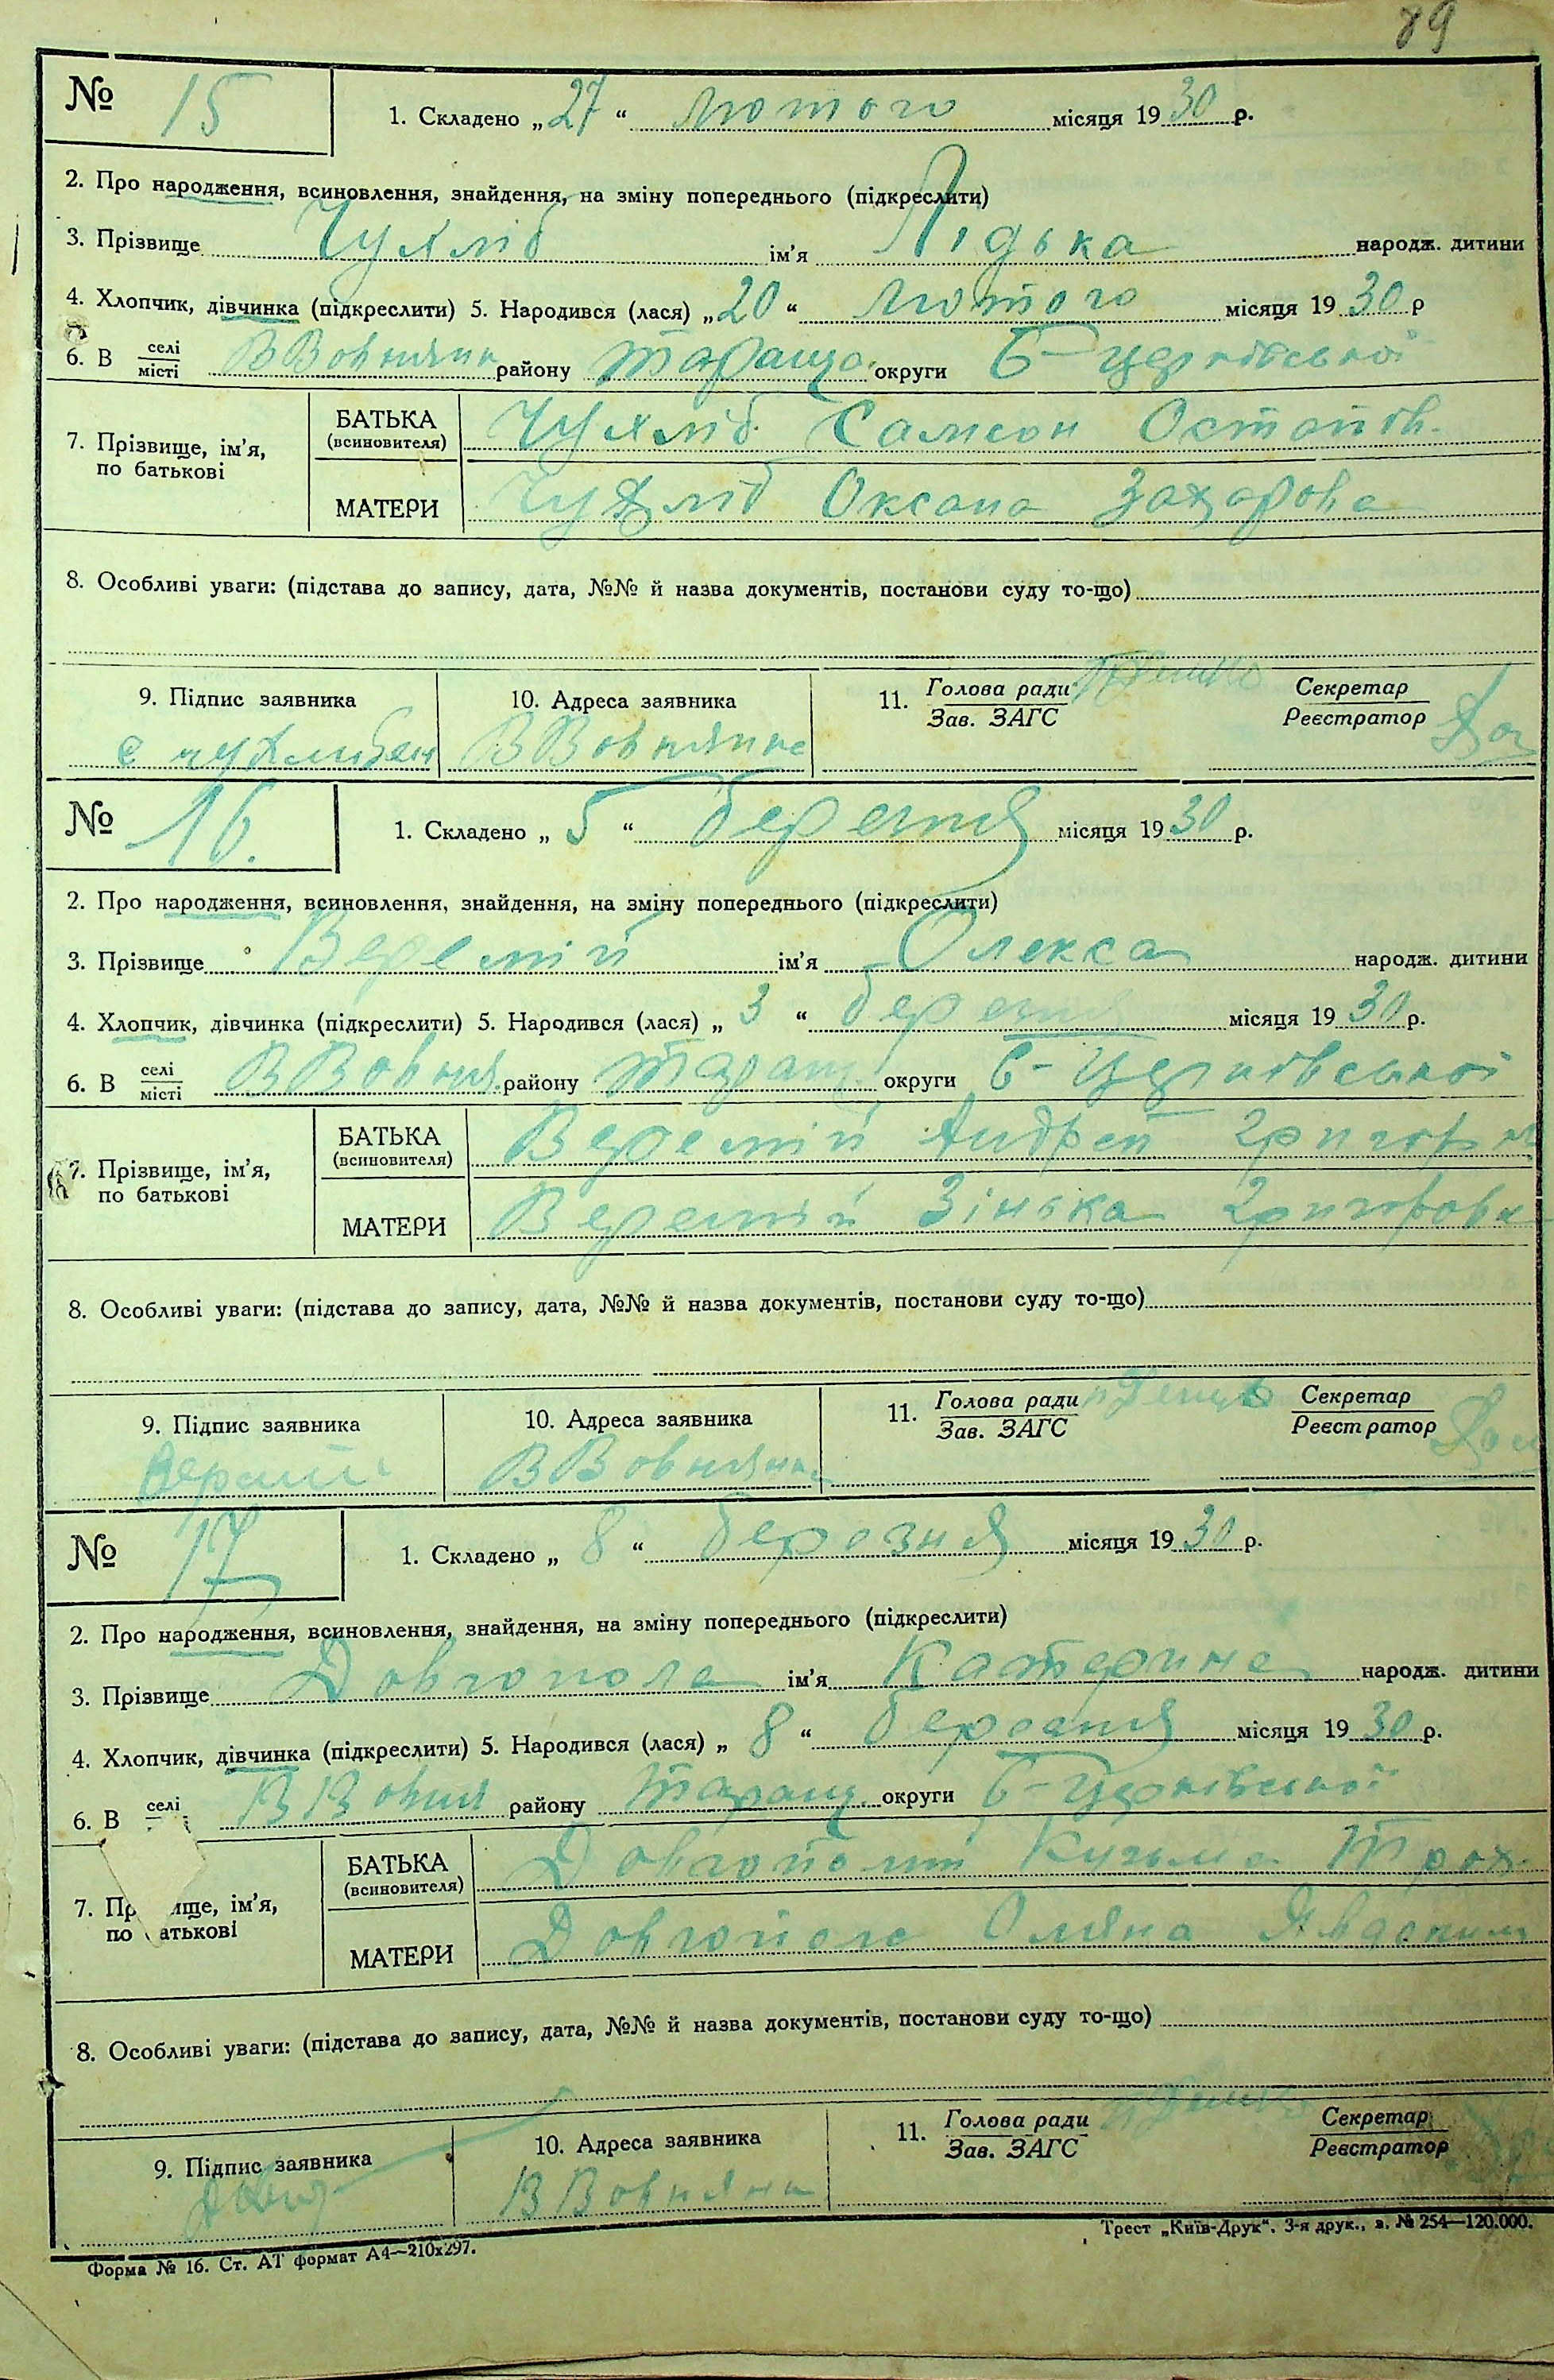 89
№ 15
1. Складено „27“ Лютого місяця 1930 р.
2. Про народження, всиновлення, знайдення, на зміну попереднього (підкреслити)
3. Прізвище Чухліб ім'я Лідька народж. дитини
4. Хлопчик, дівчинка (підкреслити) 5. Народився (лася) „20“ Лютого місяця 1930 р
6. В селі/місті ВВовнянка району Тараща округи Б-Церківської
7. Прізвище, ім'я, по батькові
БАТЬКА (всиновителя) Чухліб Самсон Остапов.
МАТЕРИ Чухліб Оксана Захарова
8. Особливі уваги: (підстава до запису, дата, №№ й назва документів, постанови суду то-що)
9. Підпис заявника
10. Адреса заявника ВВовнянка
11. Голова ради / Зав. ЗАГС
Секретар / Реєстратор
№ 16.
1. Складено „5“ березня місяця 1930 р.
2. Про народження, всиновлення, знайдення, на зміну попереднього (підкреслити)
3. Прізвище Веремій ім'я Олекса народж. дитини
4. Хлопчик, дівчинка (підкреслити) 5. Народився (лася) „3“ березня місяця 1930 р.
6. В селі/місті ВВовня. району Таращ. округи Б-Церківської
7. Прізвище, ім'я, по батькові
БАТЬКА (всиновителя) Веремій Андрей
МАТЕРИ Веремій Зінька Григорова
8. Особливі уваги: (підстава до запису, дата, №№ й назва документів, постанови суду то-що)
9. Підпис заявника Веремій
10. Адреса заявника ВВовнянка
11. Голова ради / Зав. ЗАГС
Секретар / Реєстратор
№ 17
1. Складено „8“ березня місяця 1930 р.
2. Про народження, всиновлення, знайдення, на зміну попереднього (підкреслити)
3. Прізвище Довгопола ім'я Катерина народж. дитини
4. Хлопчик, дівчинка (підкреслити) 5. Народився (лася) „8“ березня місяця 1930 р.
6. В селі ВВовня району Таращ. округи Б-Церківської
7. Пр ище, ім'я, по атькові
БАТЬКА (всиновителя) Довгополий Кузьма Трох.
МАТЕРИ Довгопола Оляна
8. Особливі уваги: (підстава до запису, дата, №№ й назва документів, постанови суду то-що)
9. Підпис заявника
10. Адреса заявника ВВовняна
11. Голова ради / Зав. ЗАГС
Секретар / Реєстратор
Трест „Київ-Друк“. 3-я друк., з. № 254—120.000.
Форма № 16. Ст. АТ формат А4—210х297.